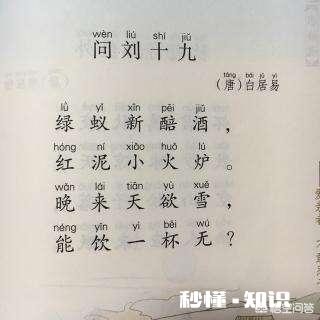 wèn liú shí jiǔ
问刘十九
táng bái jū yì
（唐）白居易
lǜ yǐ xīn pēi jiǔ
绿蚁新醅酒，
hóng ní xiǎo huǒ lú
红泥小火炉。
wǎn lái tiān yù xuě
晚来天欲雪，
néng yǐn yì bēi wú
能饮一杯无？
秒懂·知识
悟空问答